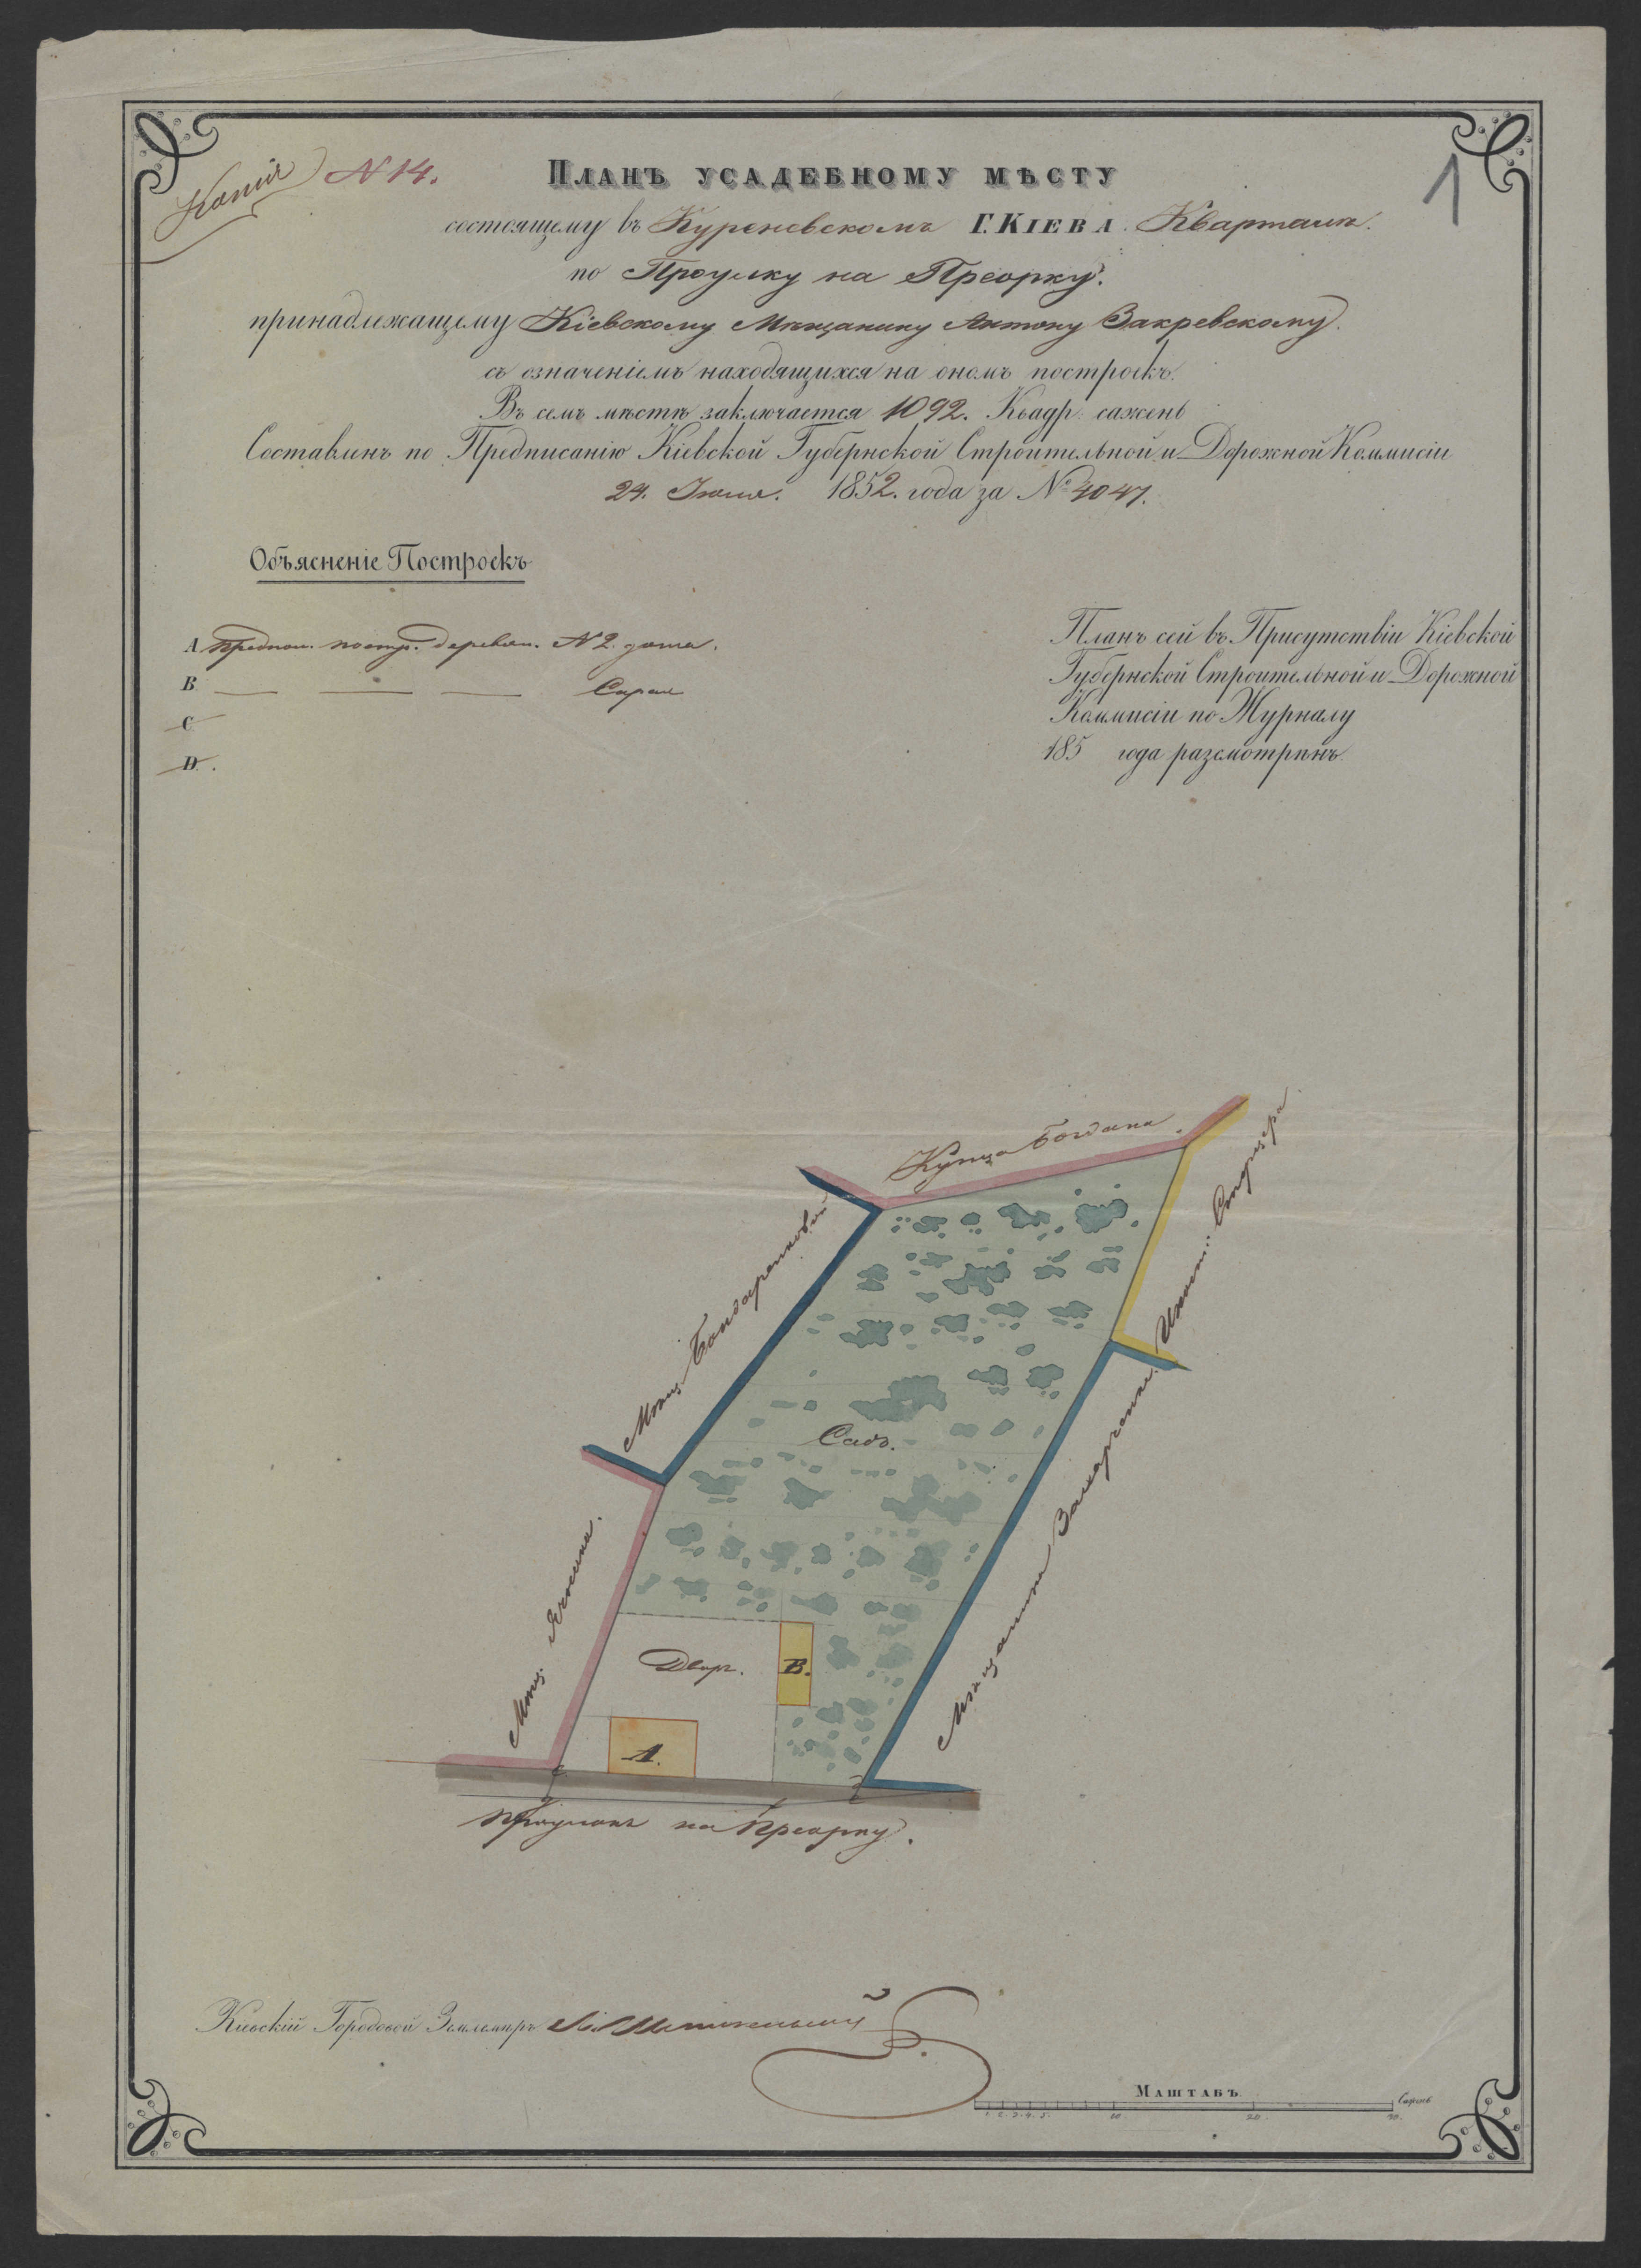 Копія N 14.
1
Планъ усадебному мѣсту
состоящему въ Куреневскомъ Г. Кіева. Кварталѣ.
по Проулку на Преорку.
принадлежащему Кіевскому Мѣщанину Антону Закревскому.
съ означеніемъ находящихся на ономъ построекъ.
Въ семъ мѣстѣ заключается 1092. Квадр: сажень
Составленъ по Предписанію Кіевской Губернской Строительной и Дорожной Коммисіи
24. Іюля. 1852. года за № 4047.
Объясненіе Построекъ
А предпол. постр. деревян. N 2. дома.
В. — — — Сарая
С
D.
Планъ сей въ Присутствіи Кіевской
Губернской Строительной и Дорожной
Коммисіи по Журналу
185 года разсмотрѣнъ.
Купца Богдана.
Мѣщ. Бондаренковой
Садъ.
Мѣщ.
Дворъ.
В.
А.
Мѣщанина Захарченка.
Проулокъ на Преорку.
Кіевскій Городовой Землемѣръ
Маштабъ.
Сажень
1. 2. 3. 4. 5. 10. 20. 30.